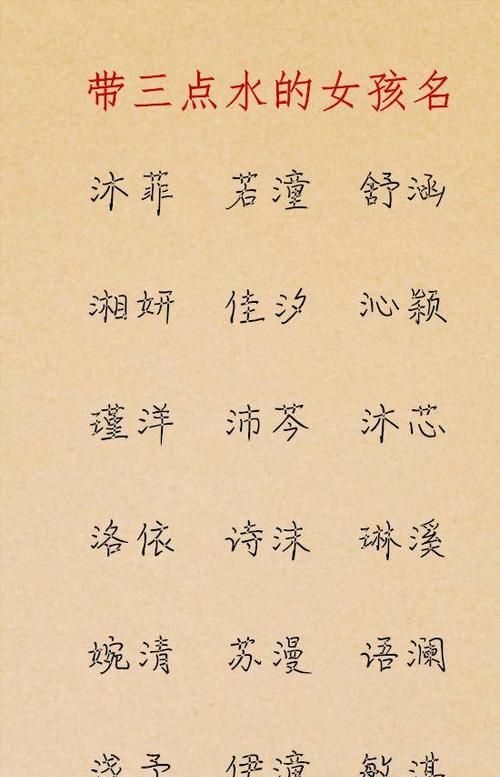 带三点水的女孩名
沐菲 若潼 舒涵
湘妍 佳汐 沁颖
瑾洋 沛芩 沐芯
洛依 诗沫 琳溪
婉清 苏漫 语澜
浅予 伊潼 敏淇